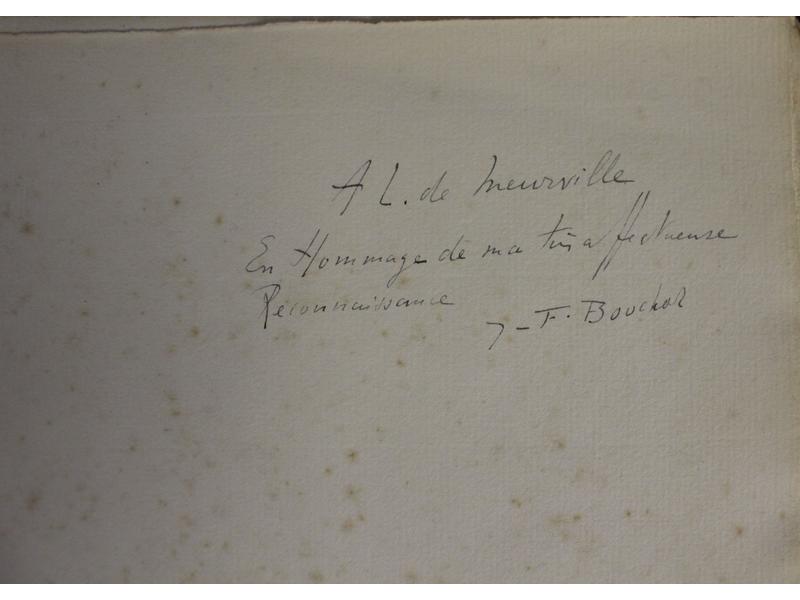 A L. de Meurville
En Hommage de ma très affectueuse
Reconnaissance
J-F. Bouchor